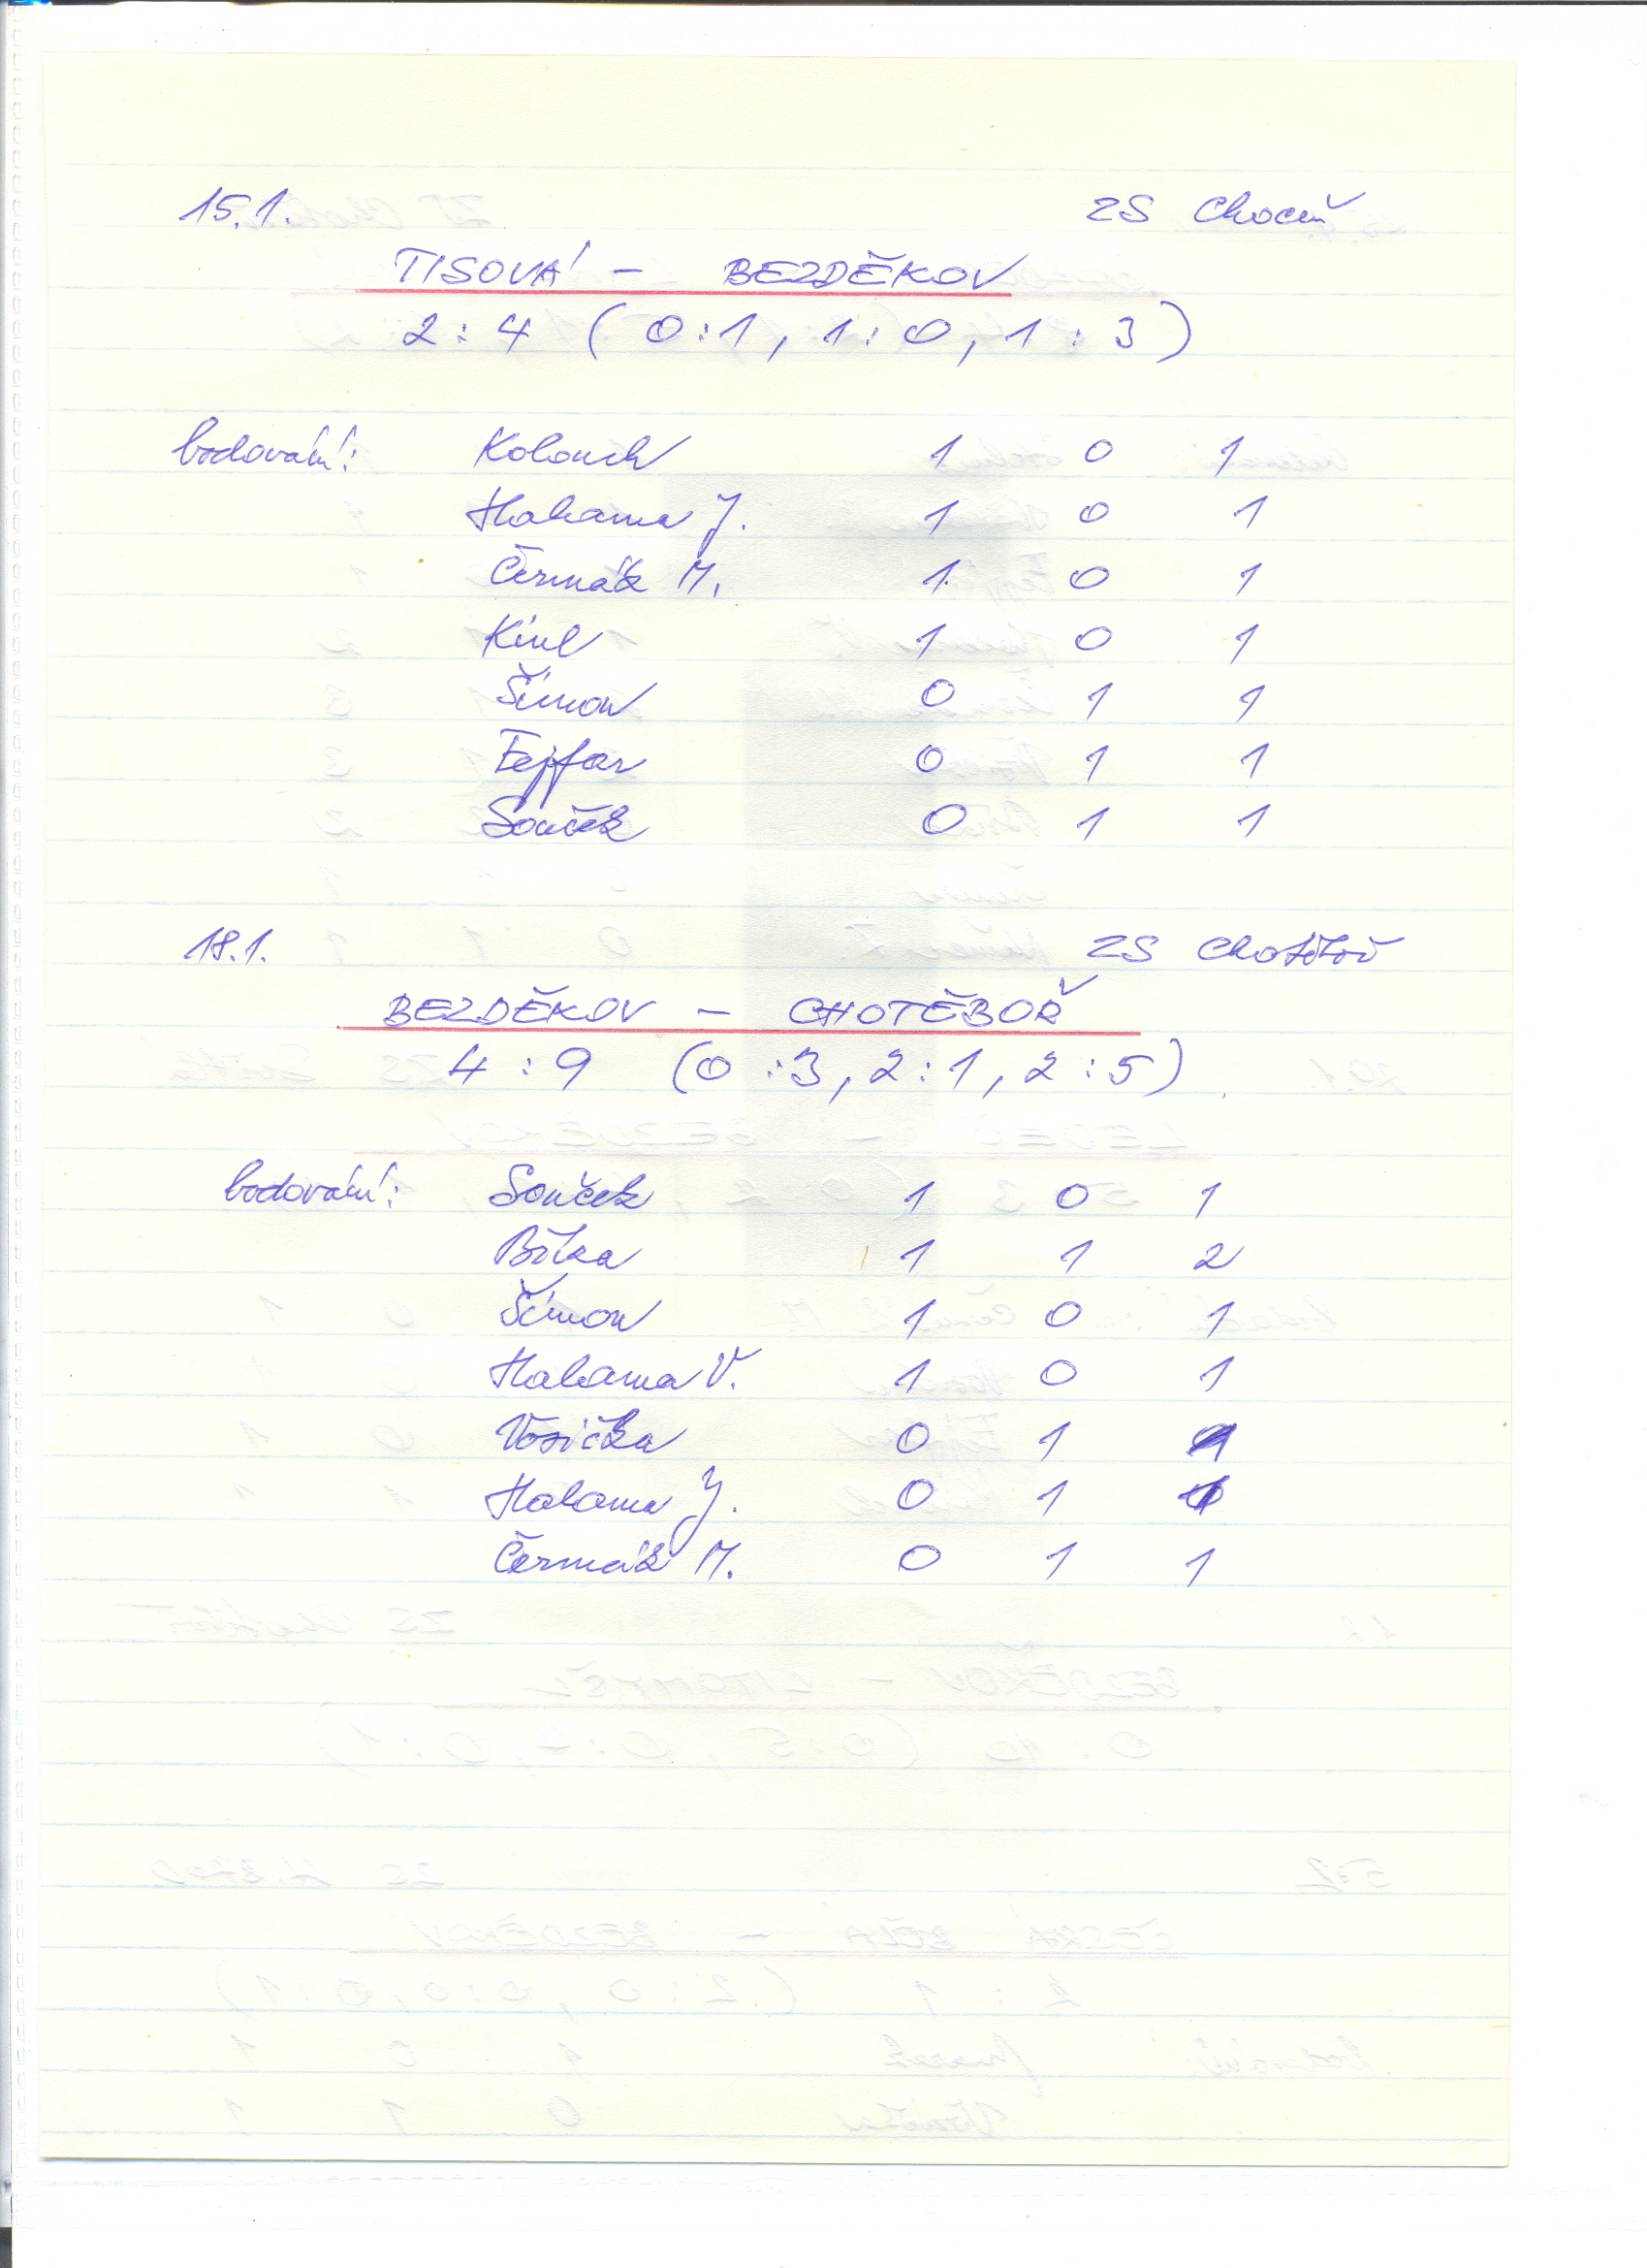 15.1. ZS Choceň
TISOVÁ - BEZDĚKOV
2:4 (0:1, 1:0, 1:3)
bodování: Kolouch 1 0 1
Halama J. 1 0 1
Čermák M. 1 0 1
Kinl 1 0 1
Šimon 0 1 1
Fejfar 0 1 1
Souček 0 1 1
18.1. ZS Chotěboř
BEZDĚKOV - CHOTĚBOŘ
4:9 (0:3, 2:1, 2:5)
bodování: Souček 1 0 1
Bílka 1 1 2
Šimon 1 0 1
Halama V. 1 0 1
Vosička 0 1 1
Halama J. 0 1 1
Čermák M. 0 1 1